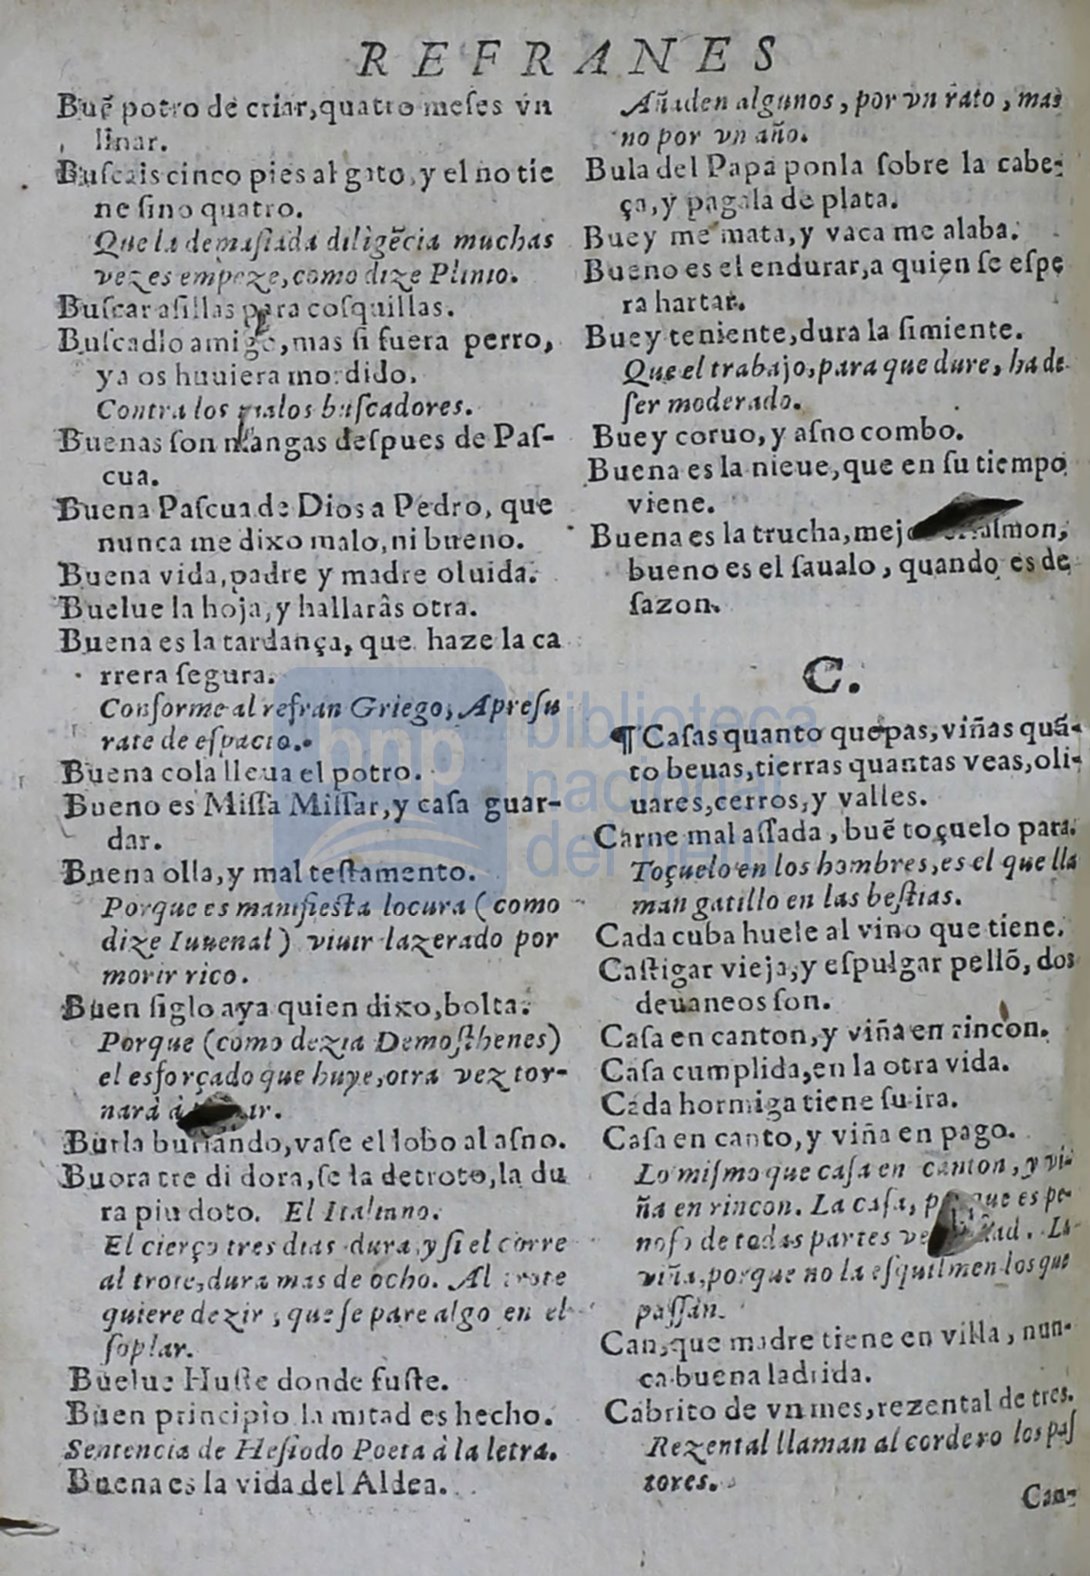 REFRANES
Buẽ potro de criar, quatro meſes vn
llnar.
Buſcais cinco pies al gato, y el no tie
ne ſino quatro.
Que la demaſiada diligẽcia muchas
vezes empeze, como dize Plinio.
Buſcar aſillas para coſquillas.
Buſcadlo amigo, mas ſi fuera perro,
ya os huuiera mordido.
Contra los malos buſcadores.
Buenas ſon mangas deſpues de Paſ-
cua.
Buena Paſcua de Dios a Pedro, que
nunca me dixo malo, ni bueno.
Buena vida, padre y madre oluida.
Buelue la hoja, y hallaràs otra.
Buena es la tardança, que haze la ca
rrera ſegura.
Conforme al refran Griego, Apreſu
rate de eſpacio.
Buena cola lleua el potro.
Bueno es Miſſa Miſſar, y caſa guar-
dar.
Buena olla, y mal teſtamento.
Porque es manifieſta locura (como
dize Iuuenal) viuir lazerado por
morir rico.
Buen ſiglo aya quien dixo, bolta.
Porque (como dezia Demoſthenes)
el esforçado que huye, otra vez tor-
narà à
Burla burlando, vaſe el lobo al aſno.
Buora tre di dora, ſe la detroto, la du
ra piu doto. El Italiano.
El cierço tres dias dura, y ſi el corre
al trote, dura mas de ocho. Al trote
quiere dezir, que ſe pare algo en el
ſoplar.
Buelue Huſte donde fuſte.
Buen principio la mitad es hecho.
Sentencia de Heſiodo Poeta à la letra.
Buena es la vida del Aldea.
Añaden algunos, por vn rato, mas
no por vn año.
Bula del Papa ponla ſobre la cabe-
ça, y pagala de plata.
Buey me mata, y vaca me alaba.
Bueno es el endurar, a quien ſe eſpe
ra hartar.
Buey teniente, dura la ſimiente.
Que el trabajo, para que dure, ha de
ſer moderado.
Buey coruo, y aſno combo.
Buena es la nieue, que en ſu tiempo
viene.
Buena es la trucha, mejor el ſalmon,
bueno es el ſaualo, quando es de
ſazon.
C.
¶ Caſas quanto quepas, viñas quã-
to beuas, tierras quantas veas, oli-
uares, cerros, y valles.
Carne mal aſſada, buẽ toçuelo para.
Toçuelo en los hombres, es el que lla
man gatillo en las beſtias.
Cada cuba huele al vino que tiene.
Caſtigar vieja, y eſpulgar pellõ, dos
deuaneos ſon.
Caſa en canton, y viña en rincon.
Caſa cumplida, en la otra vida.
Cada hormiga tiene ſu ira.
Caſa en canto, y viña en pago.
Lo miſmo que caſa en canton, y vi-
ña en rincon. La caſa, porque es pe-
noſo de todas partes vezindad. La
viña, porque no la eſquilmen los que
paſſan.
Can, que madre tiene en villa, nun-
ca buena ladrida.
Cabrito de vn mes, rezental de tres.
Rezental llaman al cordero los paſ
tores.
Can-
bnp biblioteca
nacional
del perú